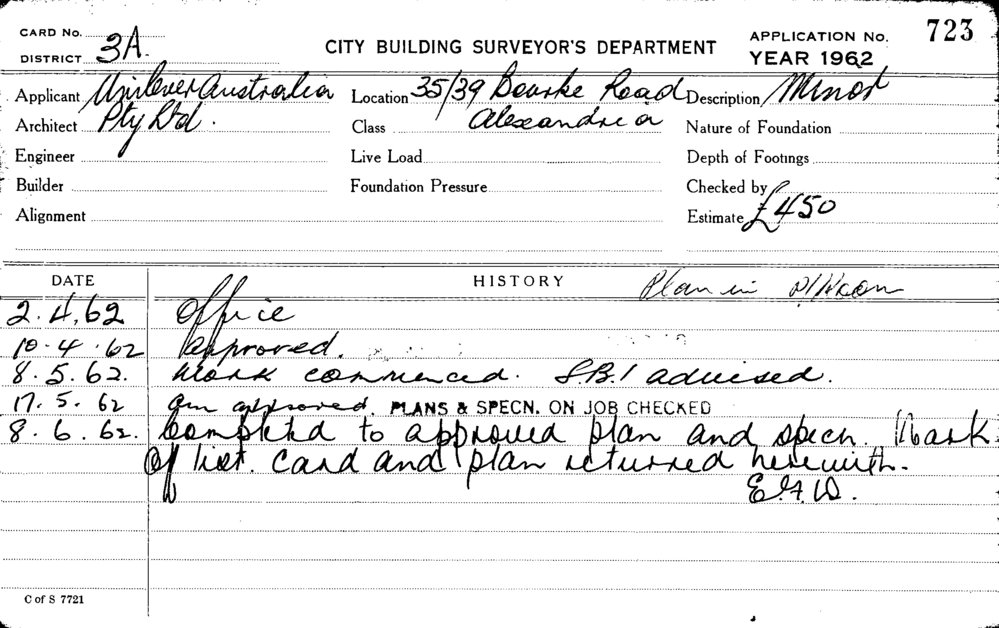 CARD No.
DISTRICT 3A.
CITY BUILDING SURVEYOR'S DEPARTMENT
APPLICATION No. 723
YEAR 1962
Applicant Unilever Australia Location 35/39 Bourke Road Description Minor
Architect Pty Ltd. Class Alexandria Nature of Foundation
Engineer Live Load Depth of Footings
Builder Foundation Pressure Checked by
Alignment Estimate £450
DATE HISTORY Plan in
2.4.62 Office
10.4.62 Approved.
8.5.62. Work commenced. S.B.I advised.
17.5.62 approved. PLANS & SPECN. ON JOB CHECKED
8.6.62. Completed to approved plan and specn. Mark
off list. Card and plan returned herewith.
C of S 7721